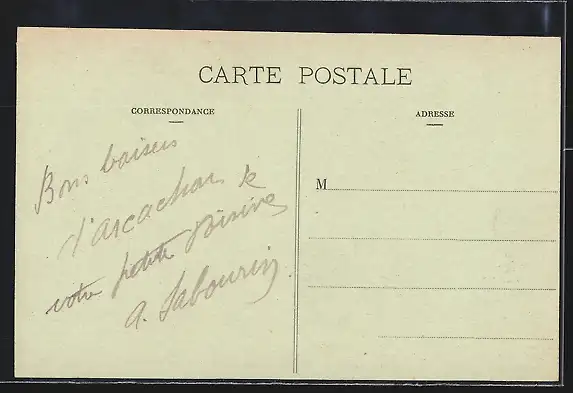 CARTE POSTALE
CORRESPONDANCE
ADRESSE
Bons baisers
d'arcachon de
votre petite voisine
a. Sabourin
M